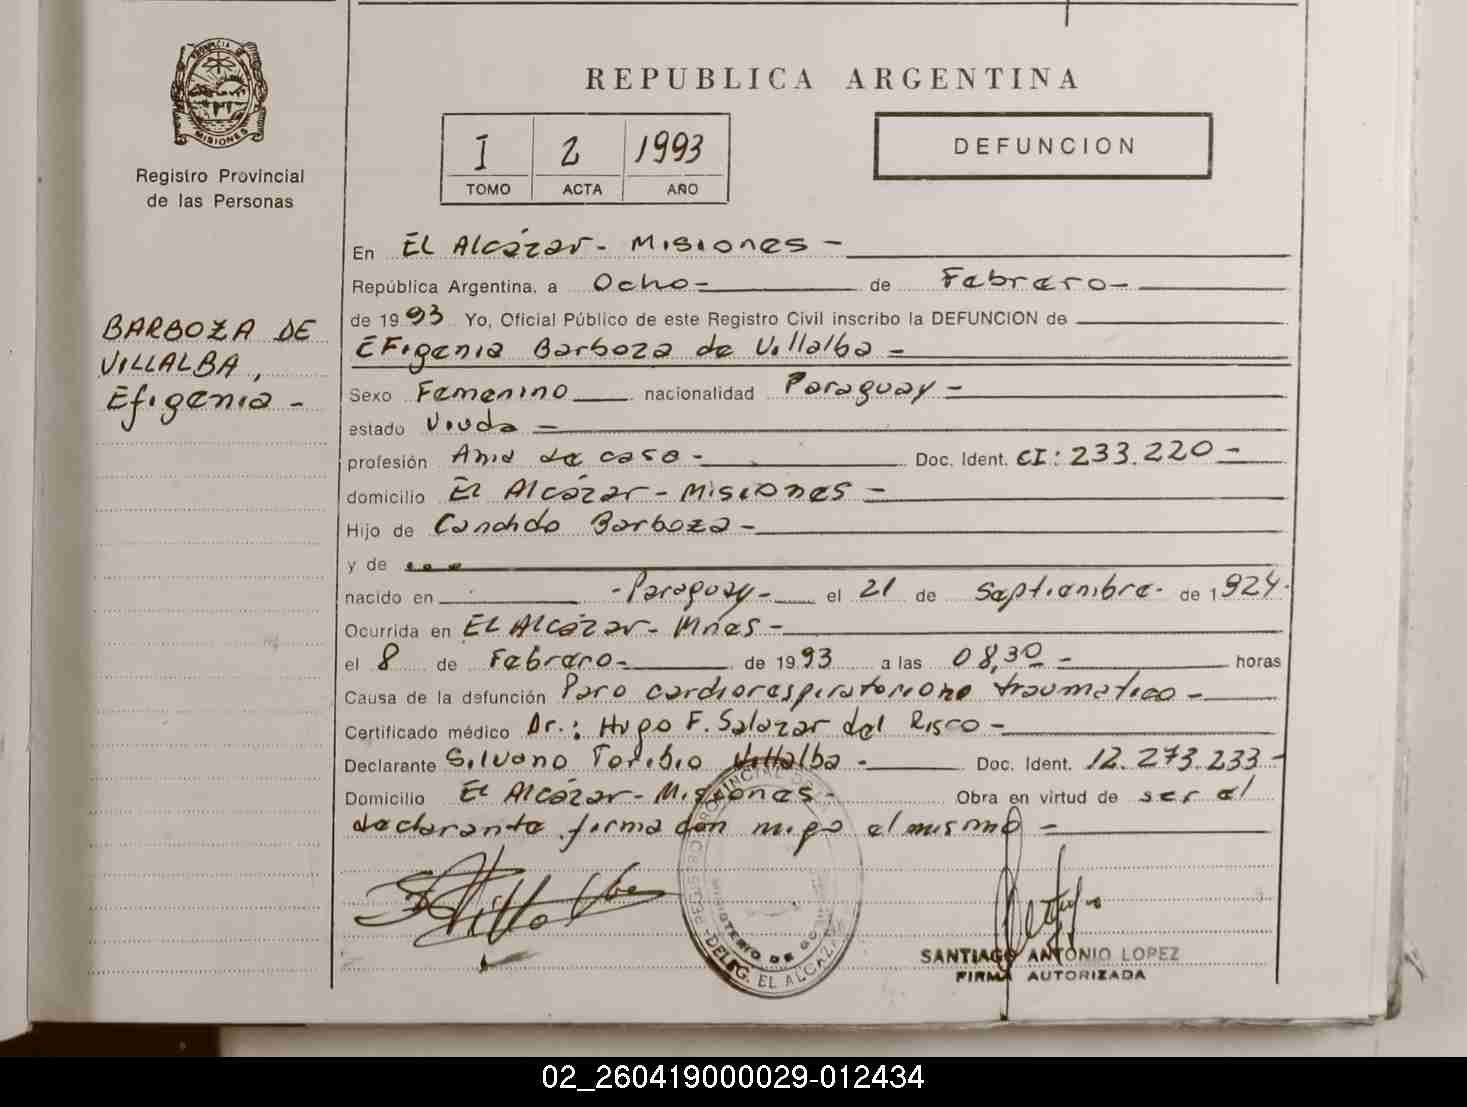 PROVINCIA DE
MISIONES
Registro Provincial
de las Personas
REPUBLICA ARGENTINA
I 2 1993
TOMO ACTA AÑO
DEFUNCION
BARBOZA DE
VILLALBA,
Efigenia -
En El Alcázar - Misiones -
República Argentina, a Ocho - de Febrero -
de 1993 Yo, Oficial Público de este Registro Civil inscribo la DEFUNCION de
Efigenia Barboza de Villalba -
Sexo Femenino nacionalidad Paraguay -
estado Viuda -
profesión Ama de casa - Doc. Ident. CI: 233.220 -
domicilio El Alcázar - Misiones -
Hijo de Candido Barboza -
y de
nacido en - Paraguay - el 21 de Septiembre - de 1924.
Ocurrida en El Alcázar - Mnes -
el 8 de Febrero - de 1993 a las 08,30 - horas
Causa de la defunción Paro cardiorespiratorio no traumatico -
Certificado médico Dr.: Hugo F. Salazar del Risco -
Declarante Silvano Toribio Villalba - Doc. Ident. 12.273.233 -
Domicilio El Alcázar - Misiones - Obra en virtud de ser el
declarante firma con migo el mismo -
REGISTRO PROVINCIAL DE L
MINISTERIO DE GO
DELEG. EL ALCAZAR
SANTIAGO ANTONIO LOPEZ
FIRMA AUTORIZADA
02_260419000029-012434